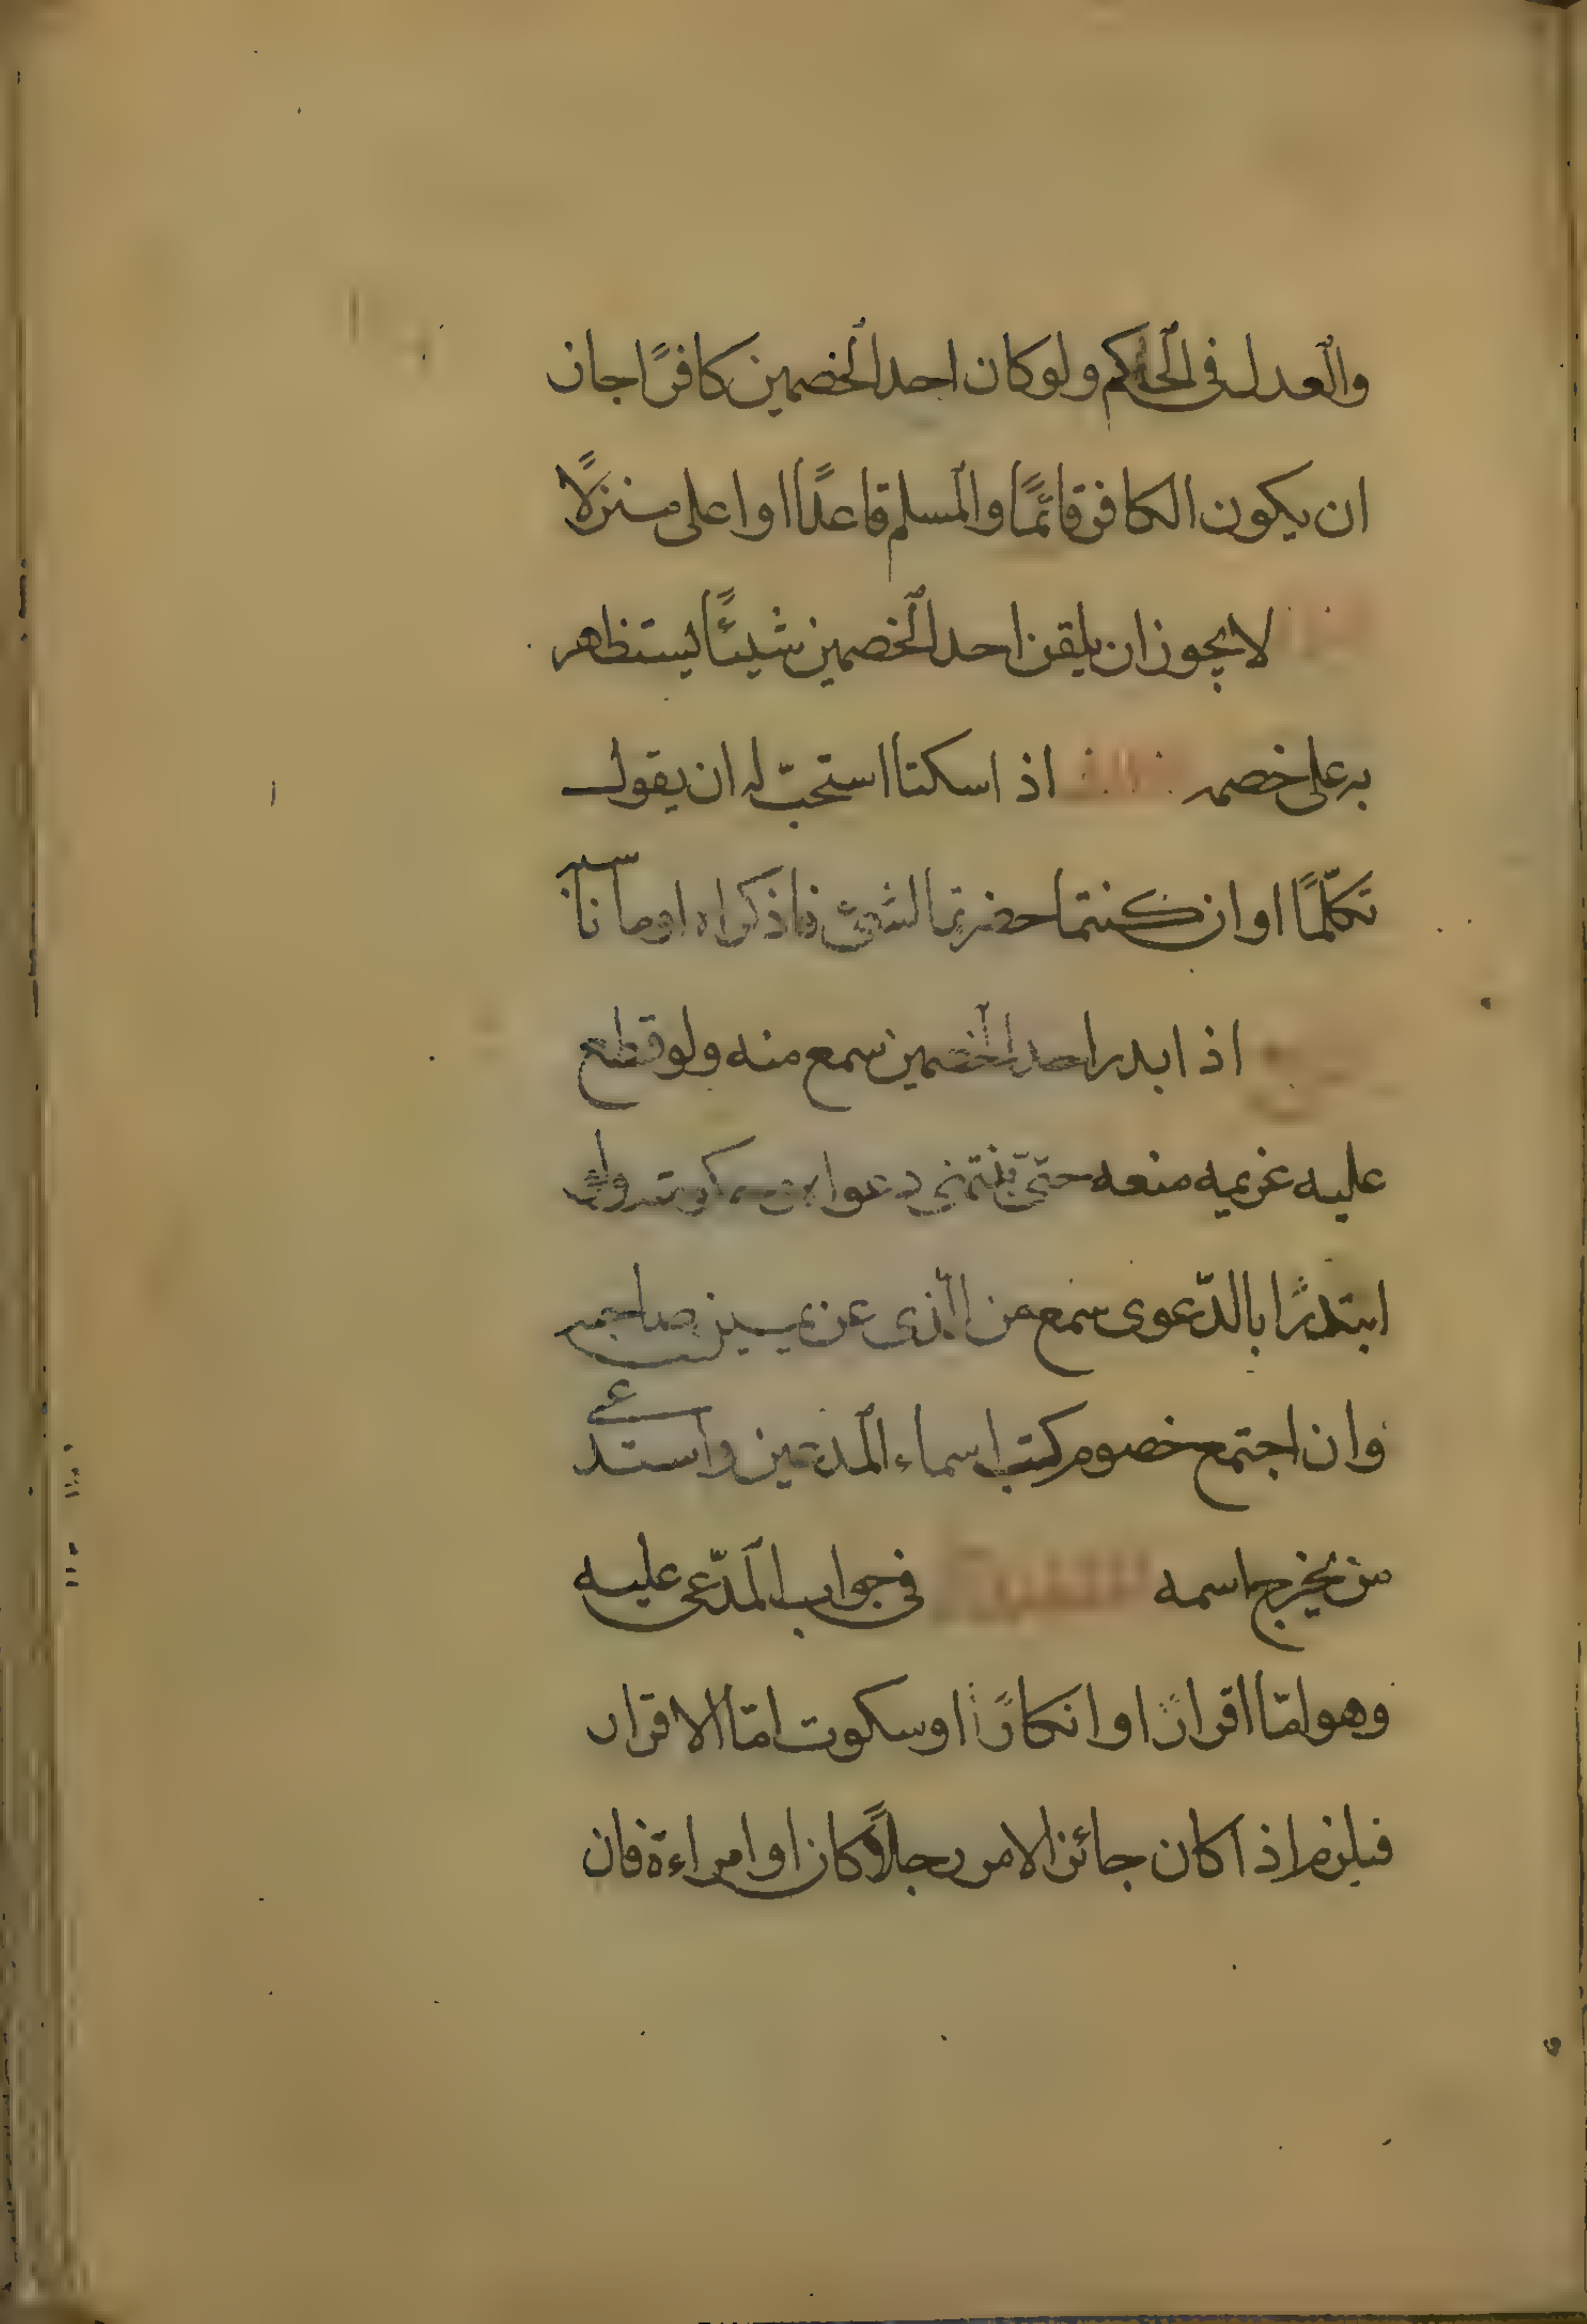 والعدل فى الحاكم ولو كان احد الخصمين كافرًا جاز
ان يكون الكافر قائمًا والمسلم قاعدًا او اعلى منزلًا
لا يجوز ان يلقن احد الخصمين شيئًا يستظهر
به على خصمه اذا سكتا استحبّ له ان يقول
تكلّمًا او ان كنتما حضرتما لشئ فاذكراه او ما ناسبه
اذا بدر احد الخصمين سمع منه ولو قطع
عليه غريمه منعه حتّى تنتهى دعواه
ابتدرًا بالدّعوى سمع من الّذى عن يمين صاحبه
وان اجتمع خصوم كتب اسماء المدعين واستدعى
من يخرج اسمه فى جواب المدّعى عليه
وهو امّا اقرارًا او انكارًا او سكوت امّا الاقرار
فيلزم اذا كان جائز الامر رجلًا كان او امراءة فان